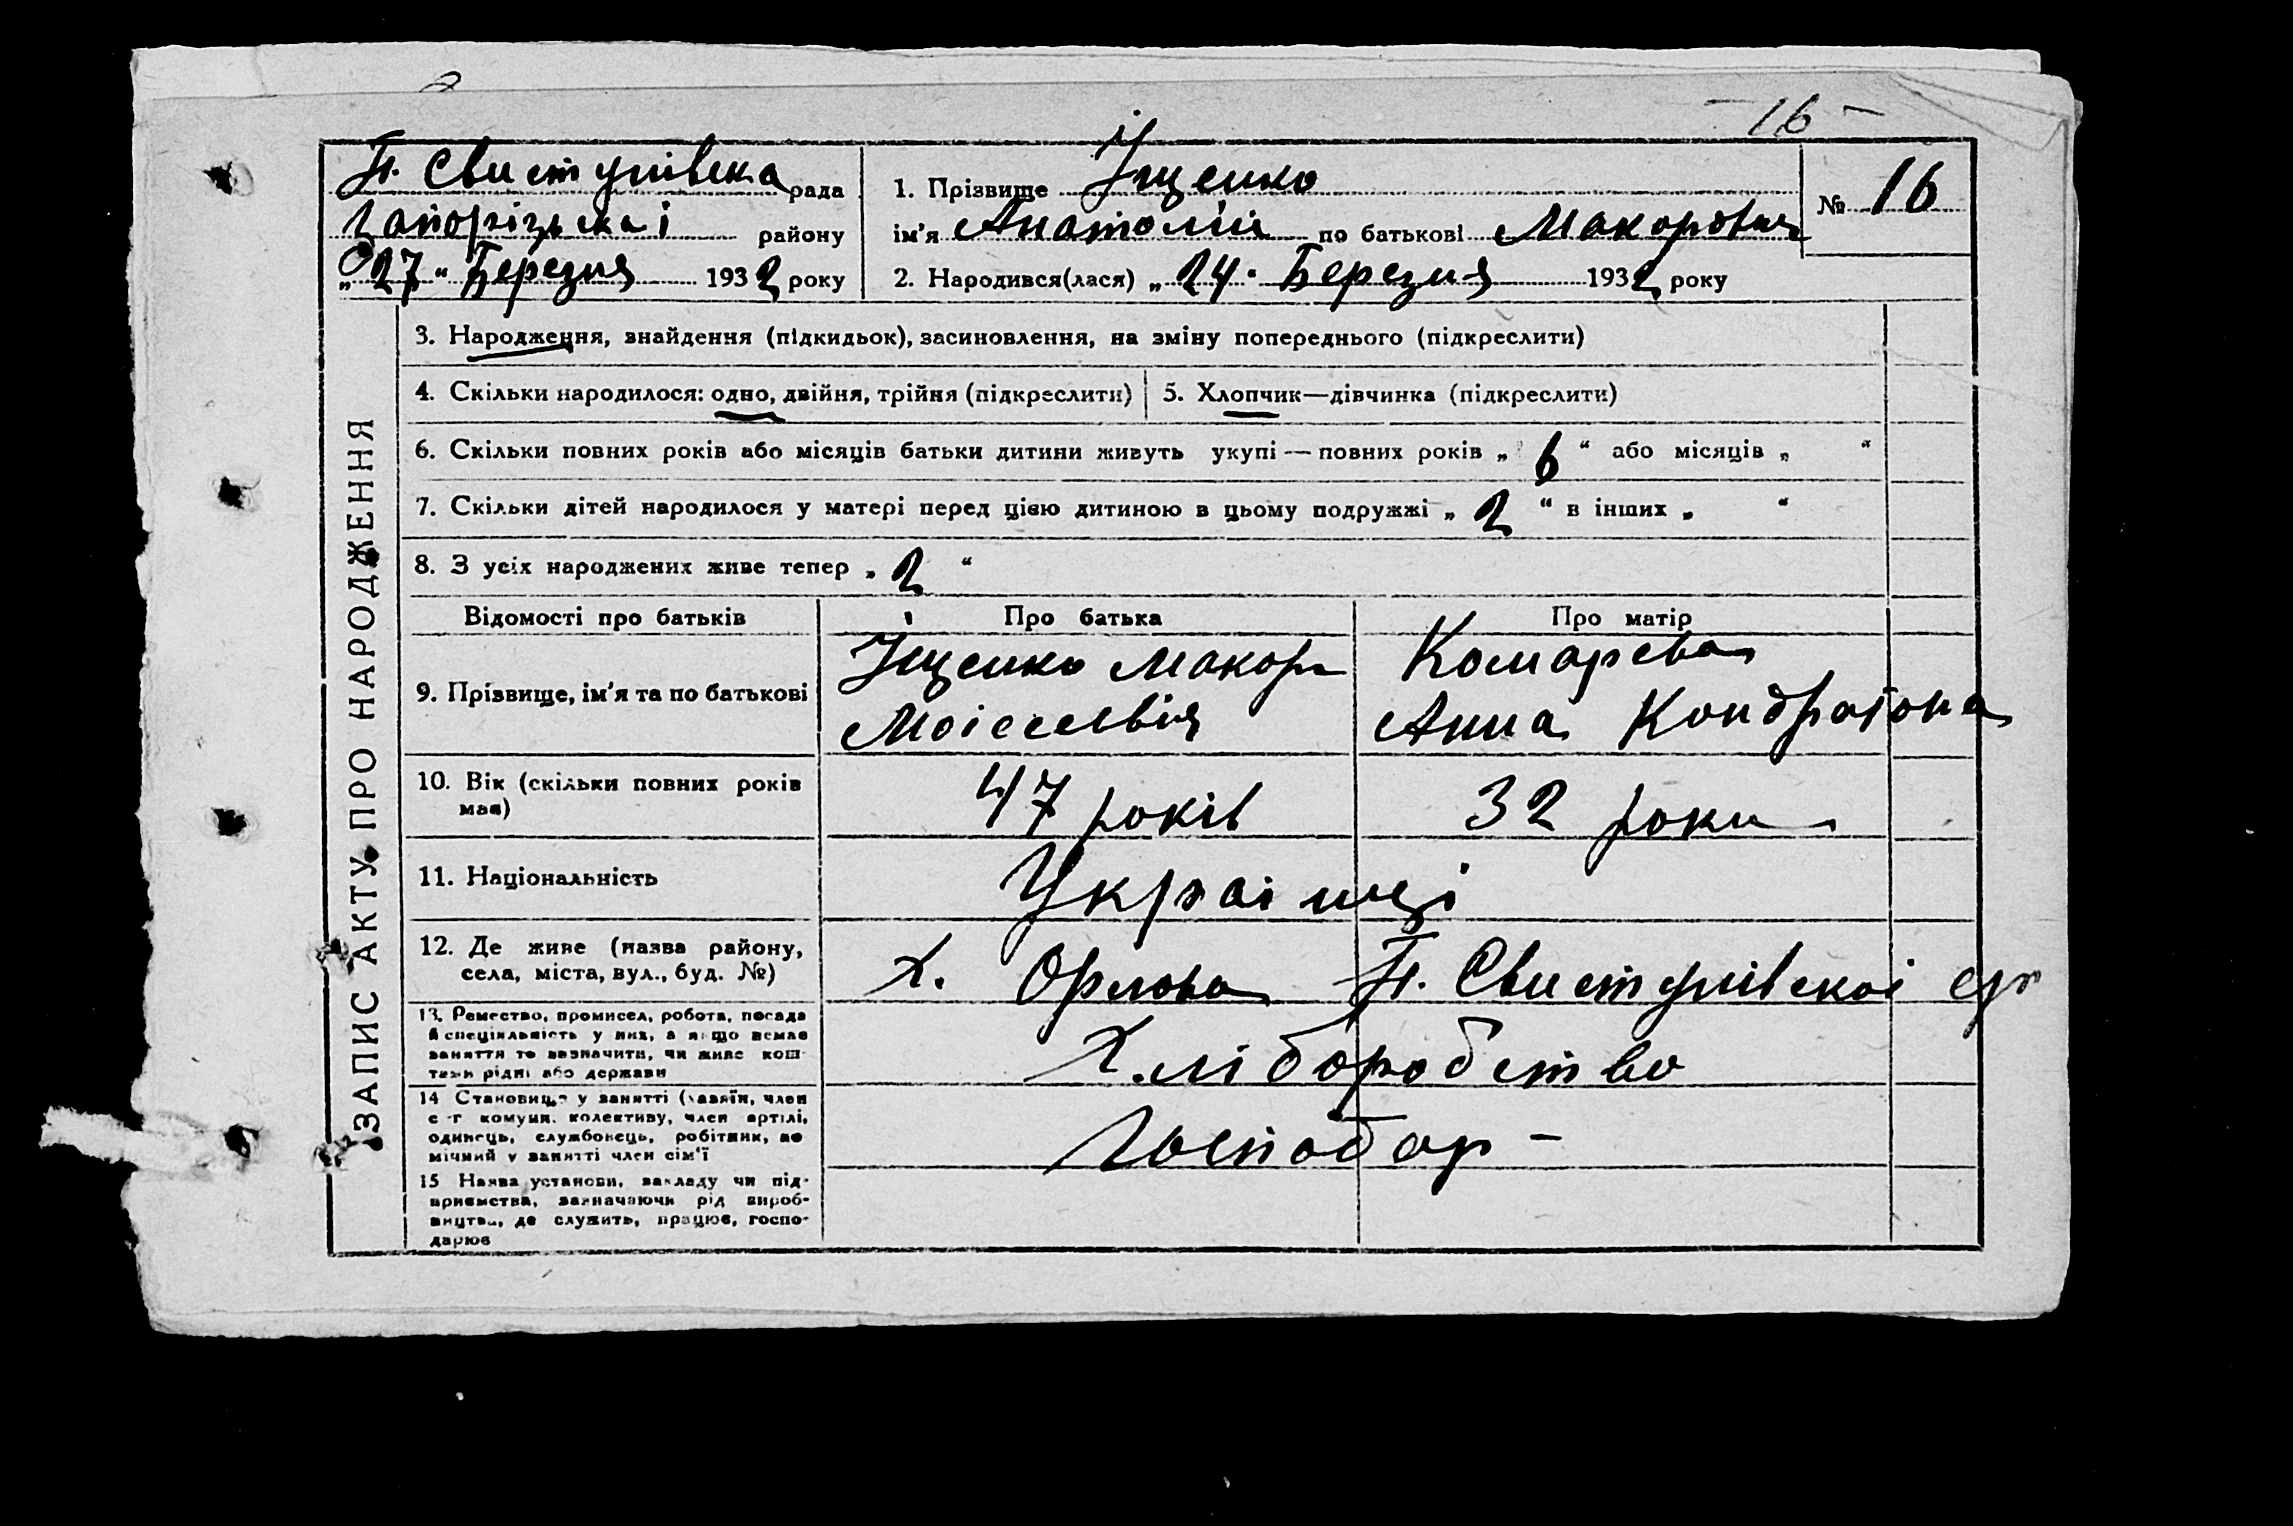 - 16 -
П. Свистунівська рада
Запорізькаі району
„27“ Березня 1932 року
1. Прізвище Іщенко
ім'я Анатолій по батькові Макорович
2. Народився(лася) „24“ Березня 1932 року
№ 16
ЗАПИС АКТУ ПРО НАРОДЖЕННЯ
3. Народження, знайдення (підкидьок), засиновлення, на зміну попереднього (підкреслити)
4. Скільки народилося: одно, двійня, трійня (підкреслити)
5. Хлопчик—дівчинка (підкреслити)
6. Скільки повних років або місяців батьки дитини живуть укупі — повних років „ 6 “ або місяців „ “
7. Скільки дітей народилося у матері перед цією дитиною в цьому подружжі „ 2 “ в інших „ “
8. З усіх народжених живе тепер „ 2 “
Відомості про батьків
Про батька
Про матір
9. Прізвище, ім'я та по батькові
Іщенко Макор
Моісеевич
Комарева
Анна Кондратовна
10. Вік (скільки повних років
має)
47 років
32 роки
11. Національність
Украінці
12. Де живе (назва району,
села, міста, вул., буд. №)
х. Орлова П. Свистунівскоі с/р
13. Ремество, промисел, робота, посада
й спеціяльність у них, а якщо немає
заняття то зазначити, чи живе кош-
тами рідні або держави
Хліборобство
14 Становище у занятті (хазяїн, член
с-г комуни, колективу, член артілі,
одинець, службовець, робітник, по
мічний у занятті член сім'ї
Господар -
15 Назва установи, закладу чи під-
приємства, зазначаючи рід вироб-
ництва, де служить, працює, госпо-
дарює